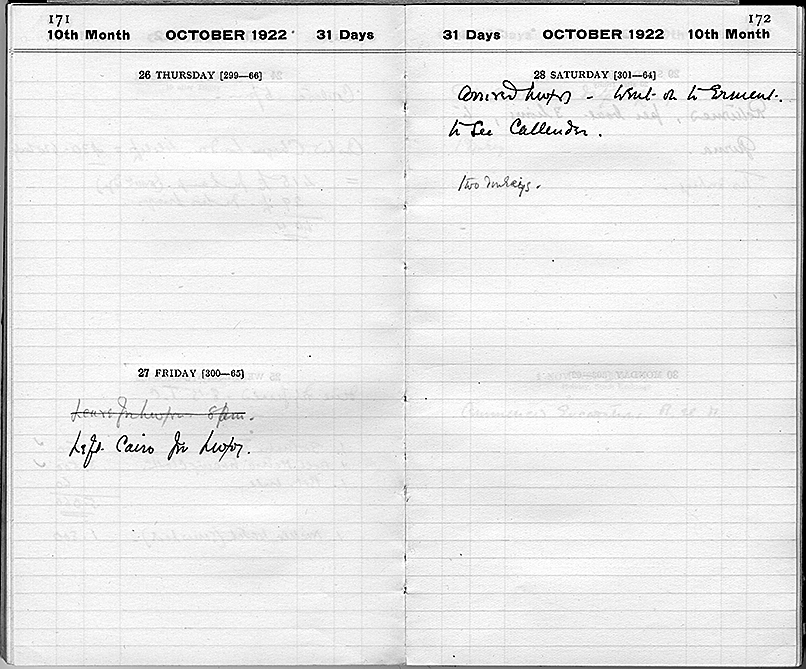 171
10th Month OCTOBER 1922 31 Days
26 THURSDAY [299—66]
27 FRIDAY [300—65]
Leave for Luxor 8 pm.
Left Cairo for Luxor.
172
31 Days OCTOBER 1922 10th Month
28 SATURDAY [301—64]
Arrived Luxor - Went on to Erment.
to see Callender.
two donkeys.